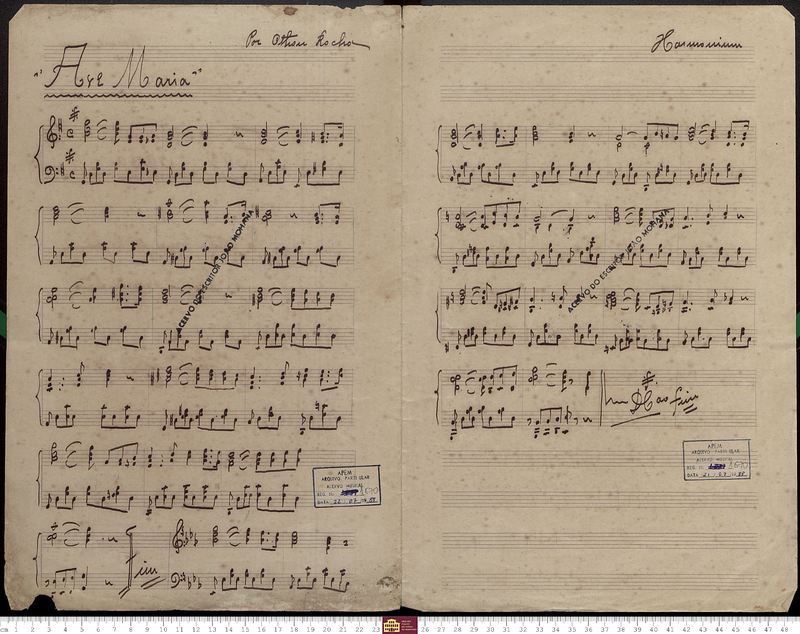 Por Othon Rocha
"Ave Maria"
ACERVO DO ESCRITOR JOÃO MOHANA
APEM
ARQUIVO PARTICULAR
ACERVO MUSICAL
REG. N.
DATA 22 07
Fim
Harmonium
ACERVO DO ESCRITOR JOÃO MOHANA
D.C. ao fim
APEM
ARQUIVO PARTICULAR
ACERVO MUSICAL
REG. N.
DATA 21 07
cm 1 2 3 4 5 6 7 8 9 10 11 12 13 14 15 16 17 18 19 20 21 22 23 26 27 28 29 30 31 32 33 34 35 36 37 38 39 40 41 42 43 44 45 46 47 48